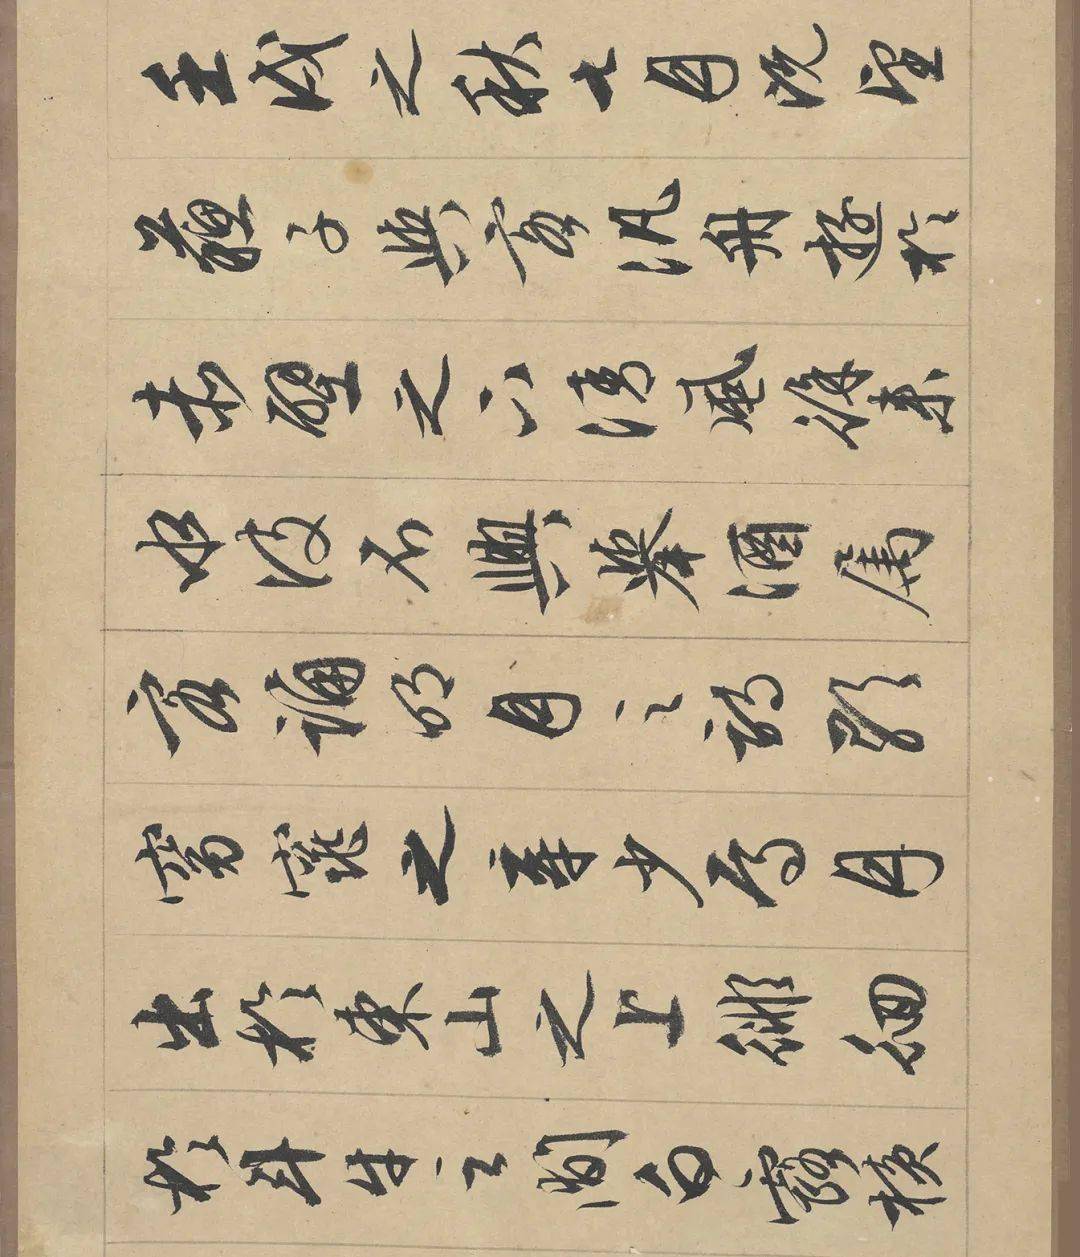 壬戌之秋七月既望
蘇子與客汎舟遊於
赤壁之下清風徐來
水波不興舉酒屬
客誦明月之詩歌
窈窕之章少焉月
出於東山之上徘徊
於斗牛之間白露橫